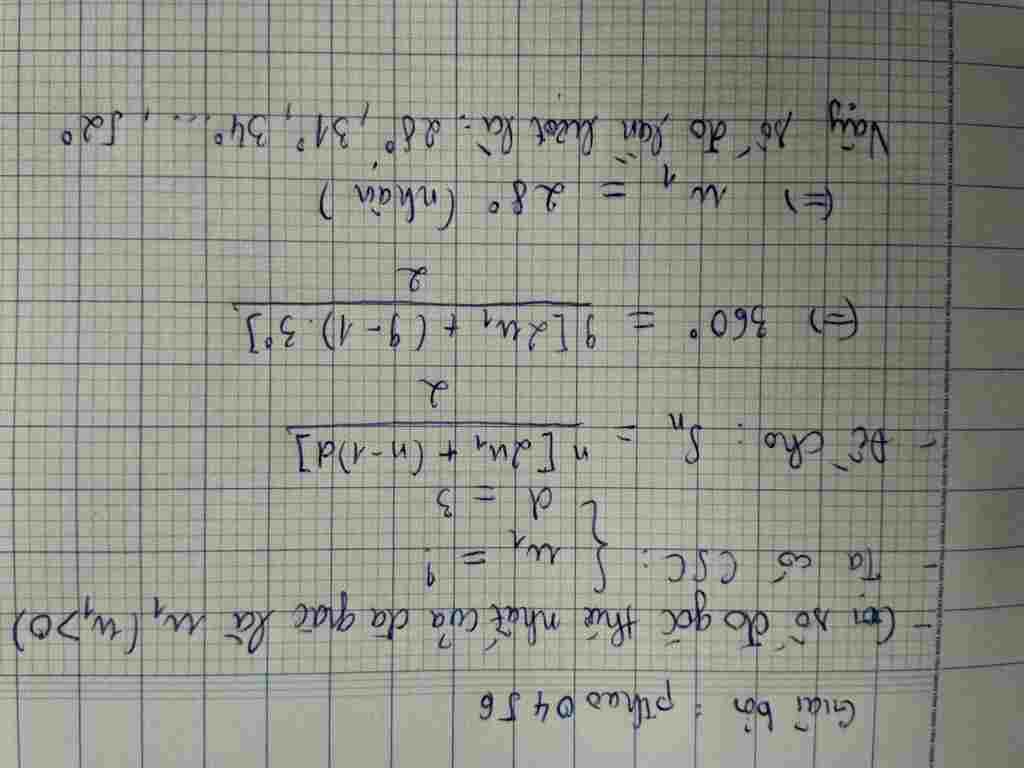 Giải bởi : pthao0456
- Gọi số đo góc thứ nhất của đa giác là u₁ (u₁>0)
- Ta có CSC : { u₁ = ?
d = 3
- Đề cho : Sₙ = n[2u₁ + (n-1)d] / 2
(=) 360° = 9[2u₁ + (9-1).3°] / 2
(=) u₁ = 28° (nhận)
Vậy số đo lần lượt là: 28°, 31°, 34°, ..., 52°